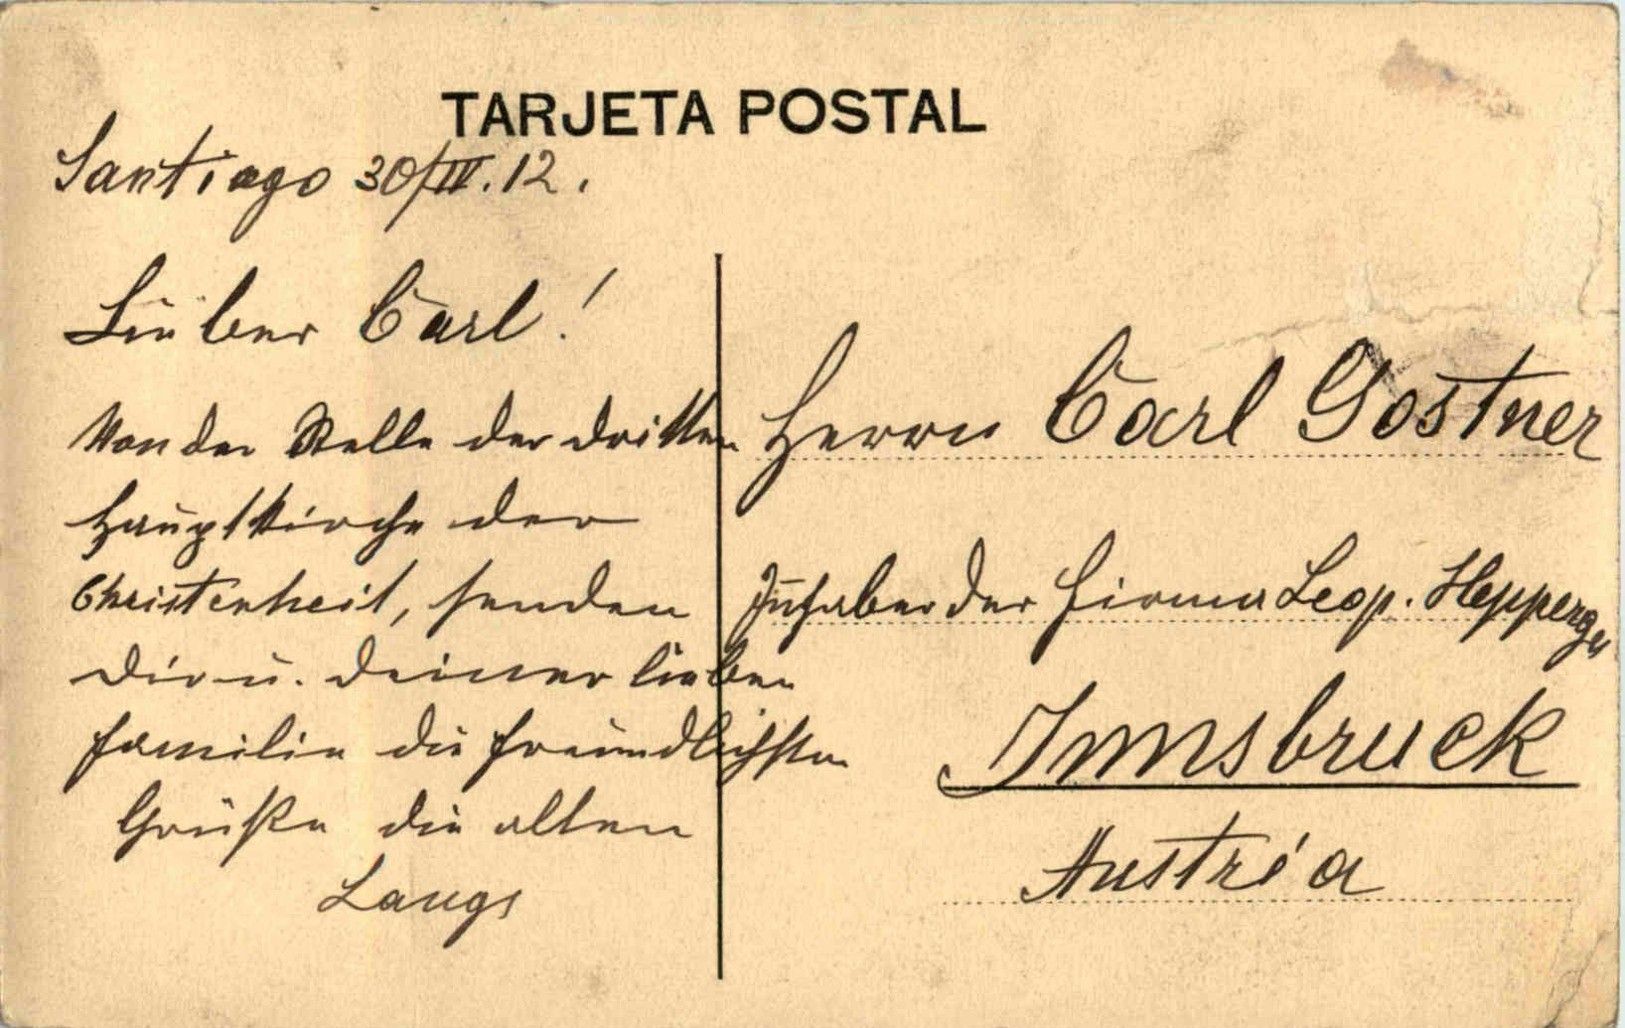 TARJETA POSTAL
Santiago 30/IV. 12.
Lieber Carl!
Von der Stelle der dritten
Hauptkirche der
Christenheit, senden
Dir u. Deiner lieben
Familie die freundlichsten
Grüße die alten
Langs
Herrn Carl Gostner
Inhaber der Firma Leop. Hepperger
Innsbruck
Austria